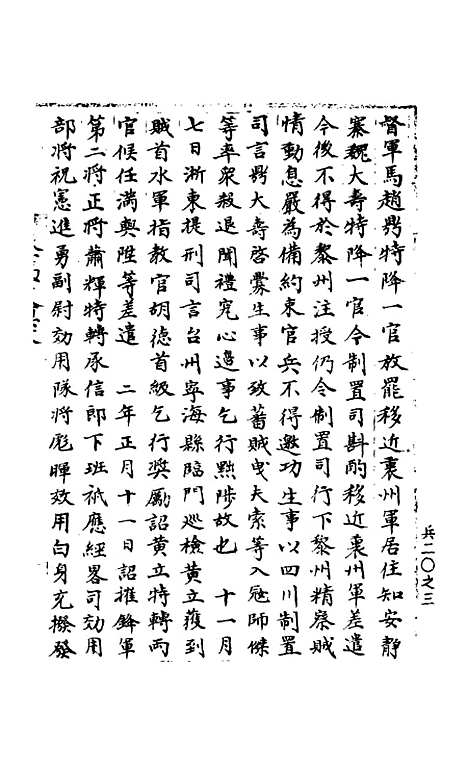 督軍馬趙鼎特降一官放罷移近裏州軍居住知安靜
寨魏大壽特降一官令制置司斟酌移近裏州軍差遣
今後不得於黎州注授仍令制置司行下黎州精察賊
情動息嚴為備約束官兵不得邀功生事以四川制置
司言鼎大壽啓釁生事以致蕃賊曳夫索等入寇師傑
等率衆殺退聞禮究心邊事乞行黜陟故也　十一月
七日浙東提刑司言台州寧海縣臨門巡檢黄立獲到
賊首水軍指教官胡德首級乞行奬勵詔黄立特轉兩
官候任滿與陞等差遣　二年正月十一日詔推鋒軍
第二將正將蕭輝特轉承信郎下班祗應經畧司効用
部將祝憲進勇副尉効用隊將彪暉效用白身充撥發
兵二〇之三